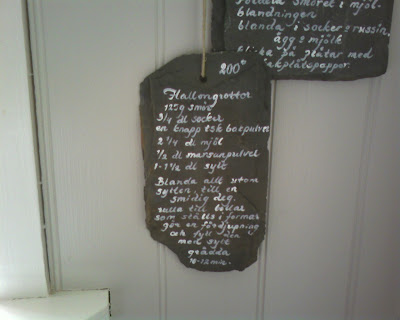 fördela smöret i mjöl-
blandningen
blanda i socker o russin,
ägg o mjölk
på plåtar med
bakplåtspapper.
200°
Hallongrottor
125g smör
3/4 dl socker
en knapp tsk bakpulver
2 1/4 dl mjöl
1/2 dl
1-1 1/2 dl sylt
Blanda allt utom
sylten, till en
smidig deg.
rulla till bollar
som ställs i formar
gör en fördjupning
och fyll den
med sylt
grädda
10-12 min.